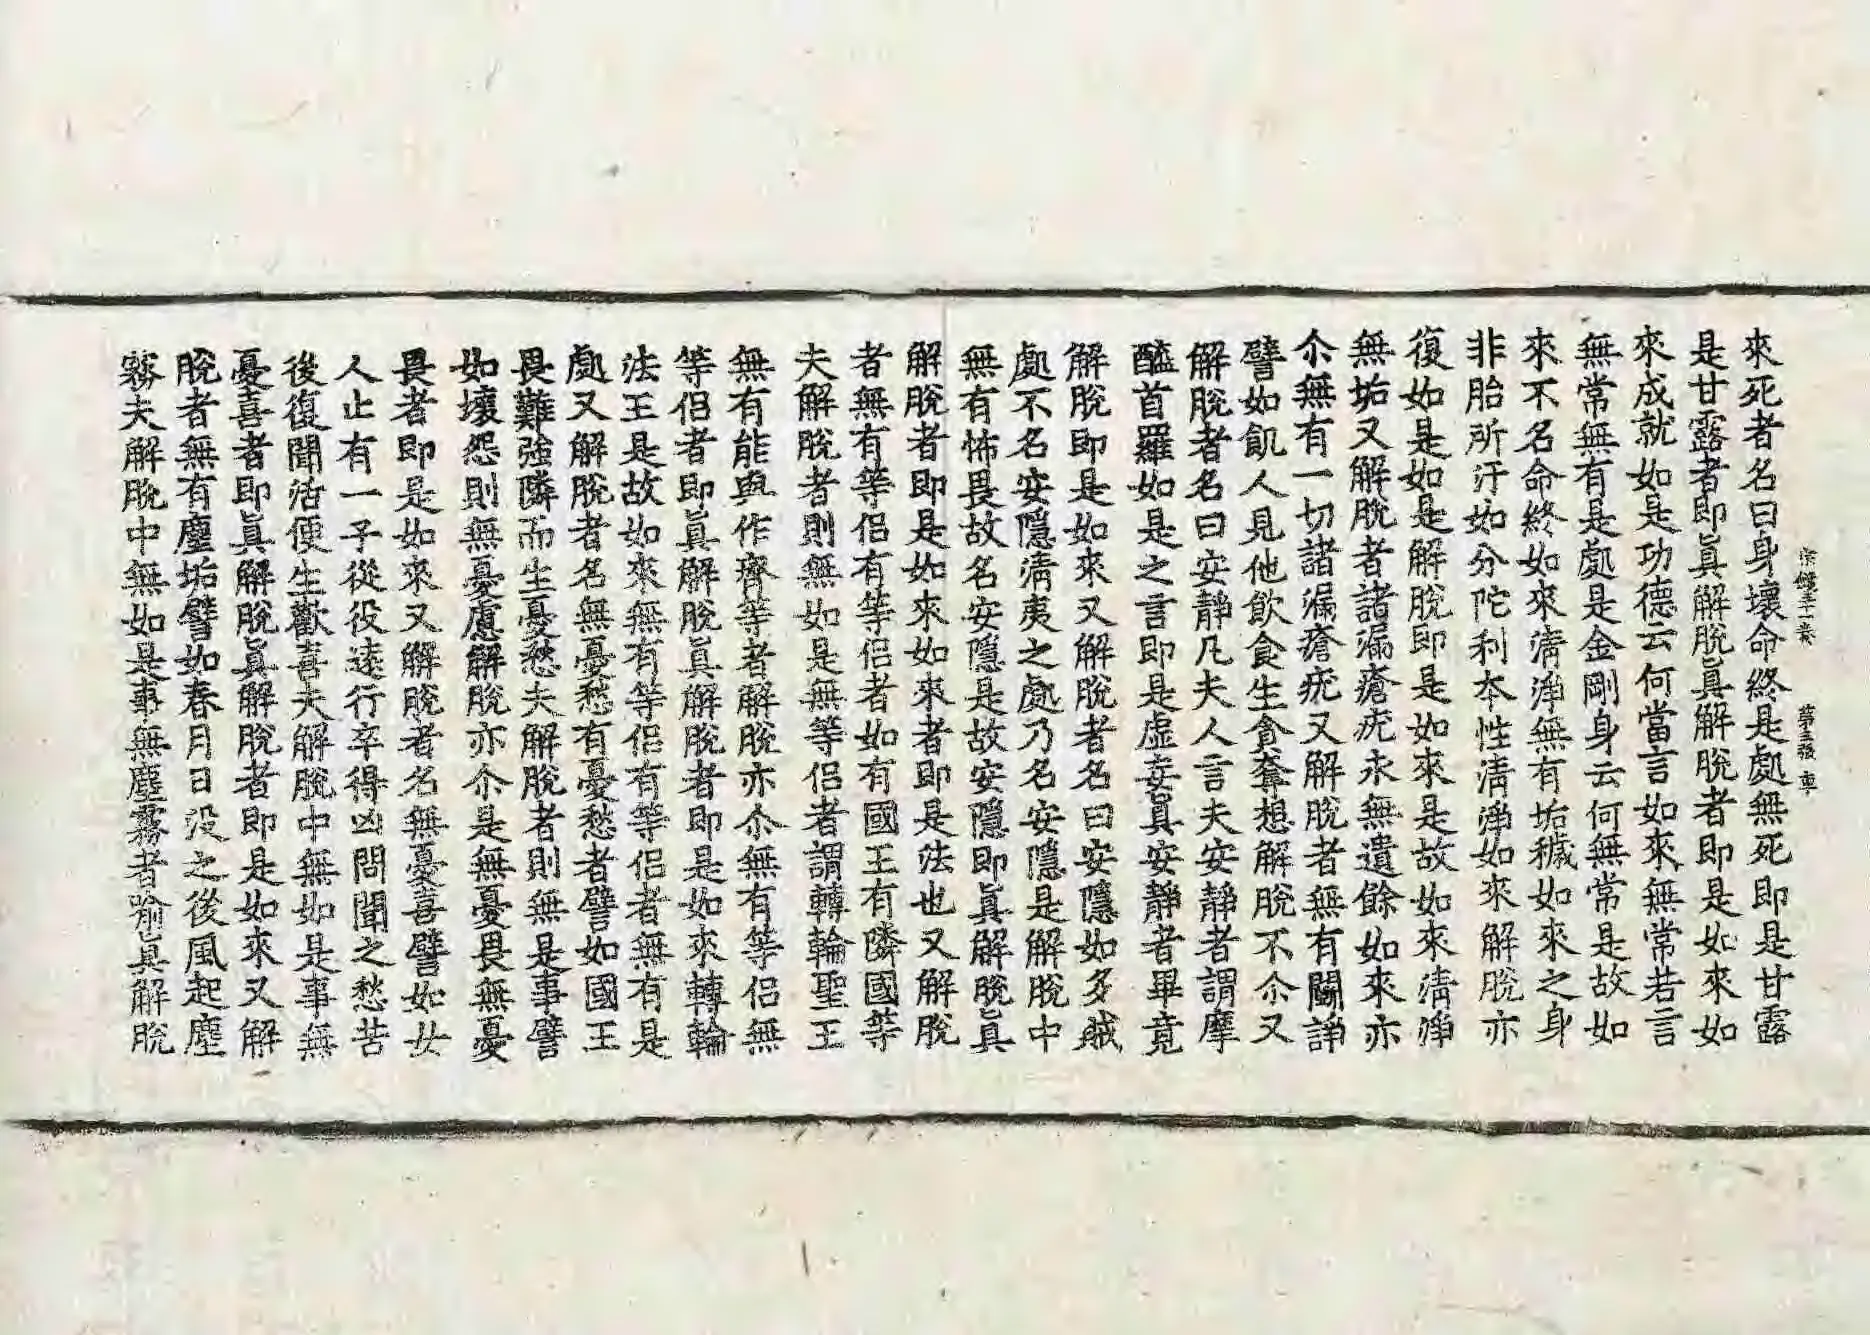 來死者名曰身壞命終是處無死即是甘露
是甘露者即眞解脫眞解脫者即是如來如
來成就如是功德云何當言如來無常若言
無常無有是處是金剛身云何無常是故如
來不名命終如來清淨無有垢穢如來之身
非胎所汙如分陀利本性清淨如來解脫亦
復如是如是解脫即是如來是故如來清淨
無垢又解脫者諸漏瘡疣永無遺餘如來亦
尒無有一切諸漏瘡疣又解脫者無有鬪諍
譬如飢人見他飲食生貪奪想解脫不尒又
解脫者名曰安靜凡夫人言夫安靜者謂摩
醯首羅如是之言即是虛妄眞安靜者畢竟
解脫即是如來又解脫者名曰安隱如多賊
處不名安隱清夷之處乃名安隱是解脫中
無有怖畏故名安隱是故安隱即眞解脫眞
解脫者即是如來如來者即是法也又解脫
者無有等侣有等侣者如有國王有隣國等
夫解脫者則無如是無等侣者謂轉輪聖王
無有能與作齊等者解脫亦尒無有等侣無
等侣者即眞解脫眞解脫者即是如來轉輪
法王是故如來無有等侣有等侣者無有是
處又解脫者名無憂愁有憂愁者譬如國王
畏難強隣而生憂愁夫解脫者則無是事譬
如壞怨則無憂慮解脫亦尒是無憂畏無憂
畏者即是如來又解脫者名無憂喜譬如女
人止有一子從役遠行卒得凶問聞之愁苦
後復聞活便生歡喜夫解脫中無如是事無
憂喜者即眞解脫眞解脫者即是如來又解
脫者無有塵垢譬如春月日没之後風起塵
霧夫解脫中無如是事無塵霧者喻眞解脫